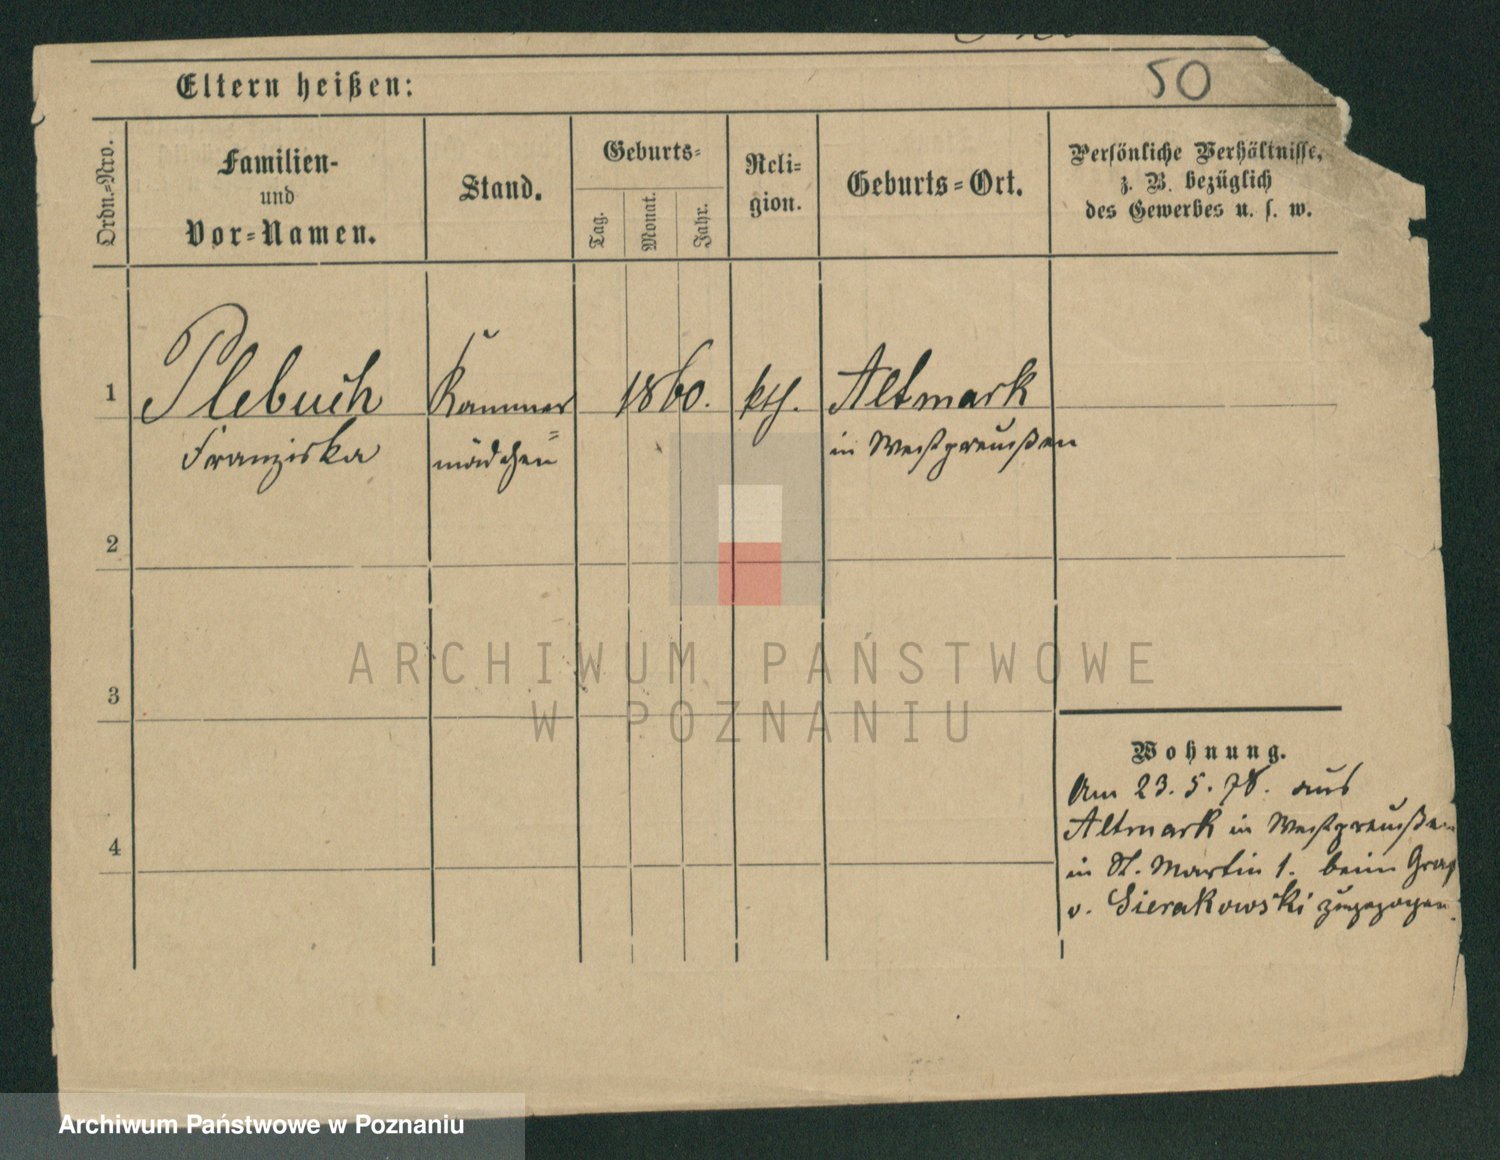 50
Eltern heißen:
Ordn.-Nro.
Familien-
und
Vor-Namen.
Stand.
Geburts-
Tag.
Monat.
Jahr.
Reli-
gion.
Geburts-Ort.
Persönliche Verhältnisse,
z. B. bezüglich
des Gewerbes u. s. w.
1
Plebuch
Franziska
Kammer
mädchen
1860.
kth.
Altmark
in Westpreußen
2
3
4
Wohnung.
Am 23.5.78. aus
Altmark in Westpreußen
in St. Martin 1. beim Graf
v. Sierakowski zugezogen.
ARCHIWUM PAŃSTWOWE
W POZNANIU
Archiwum Państwowe w Poznaniu